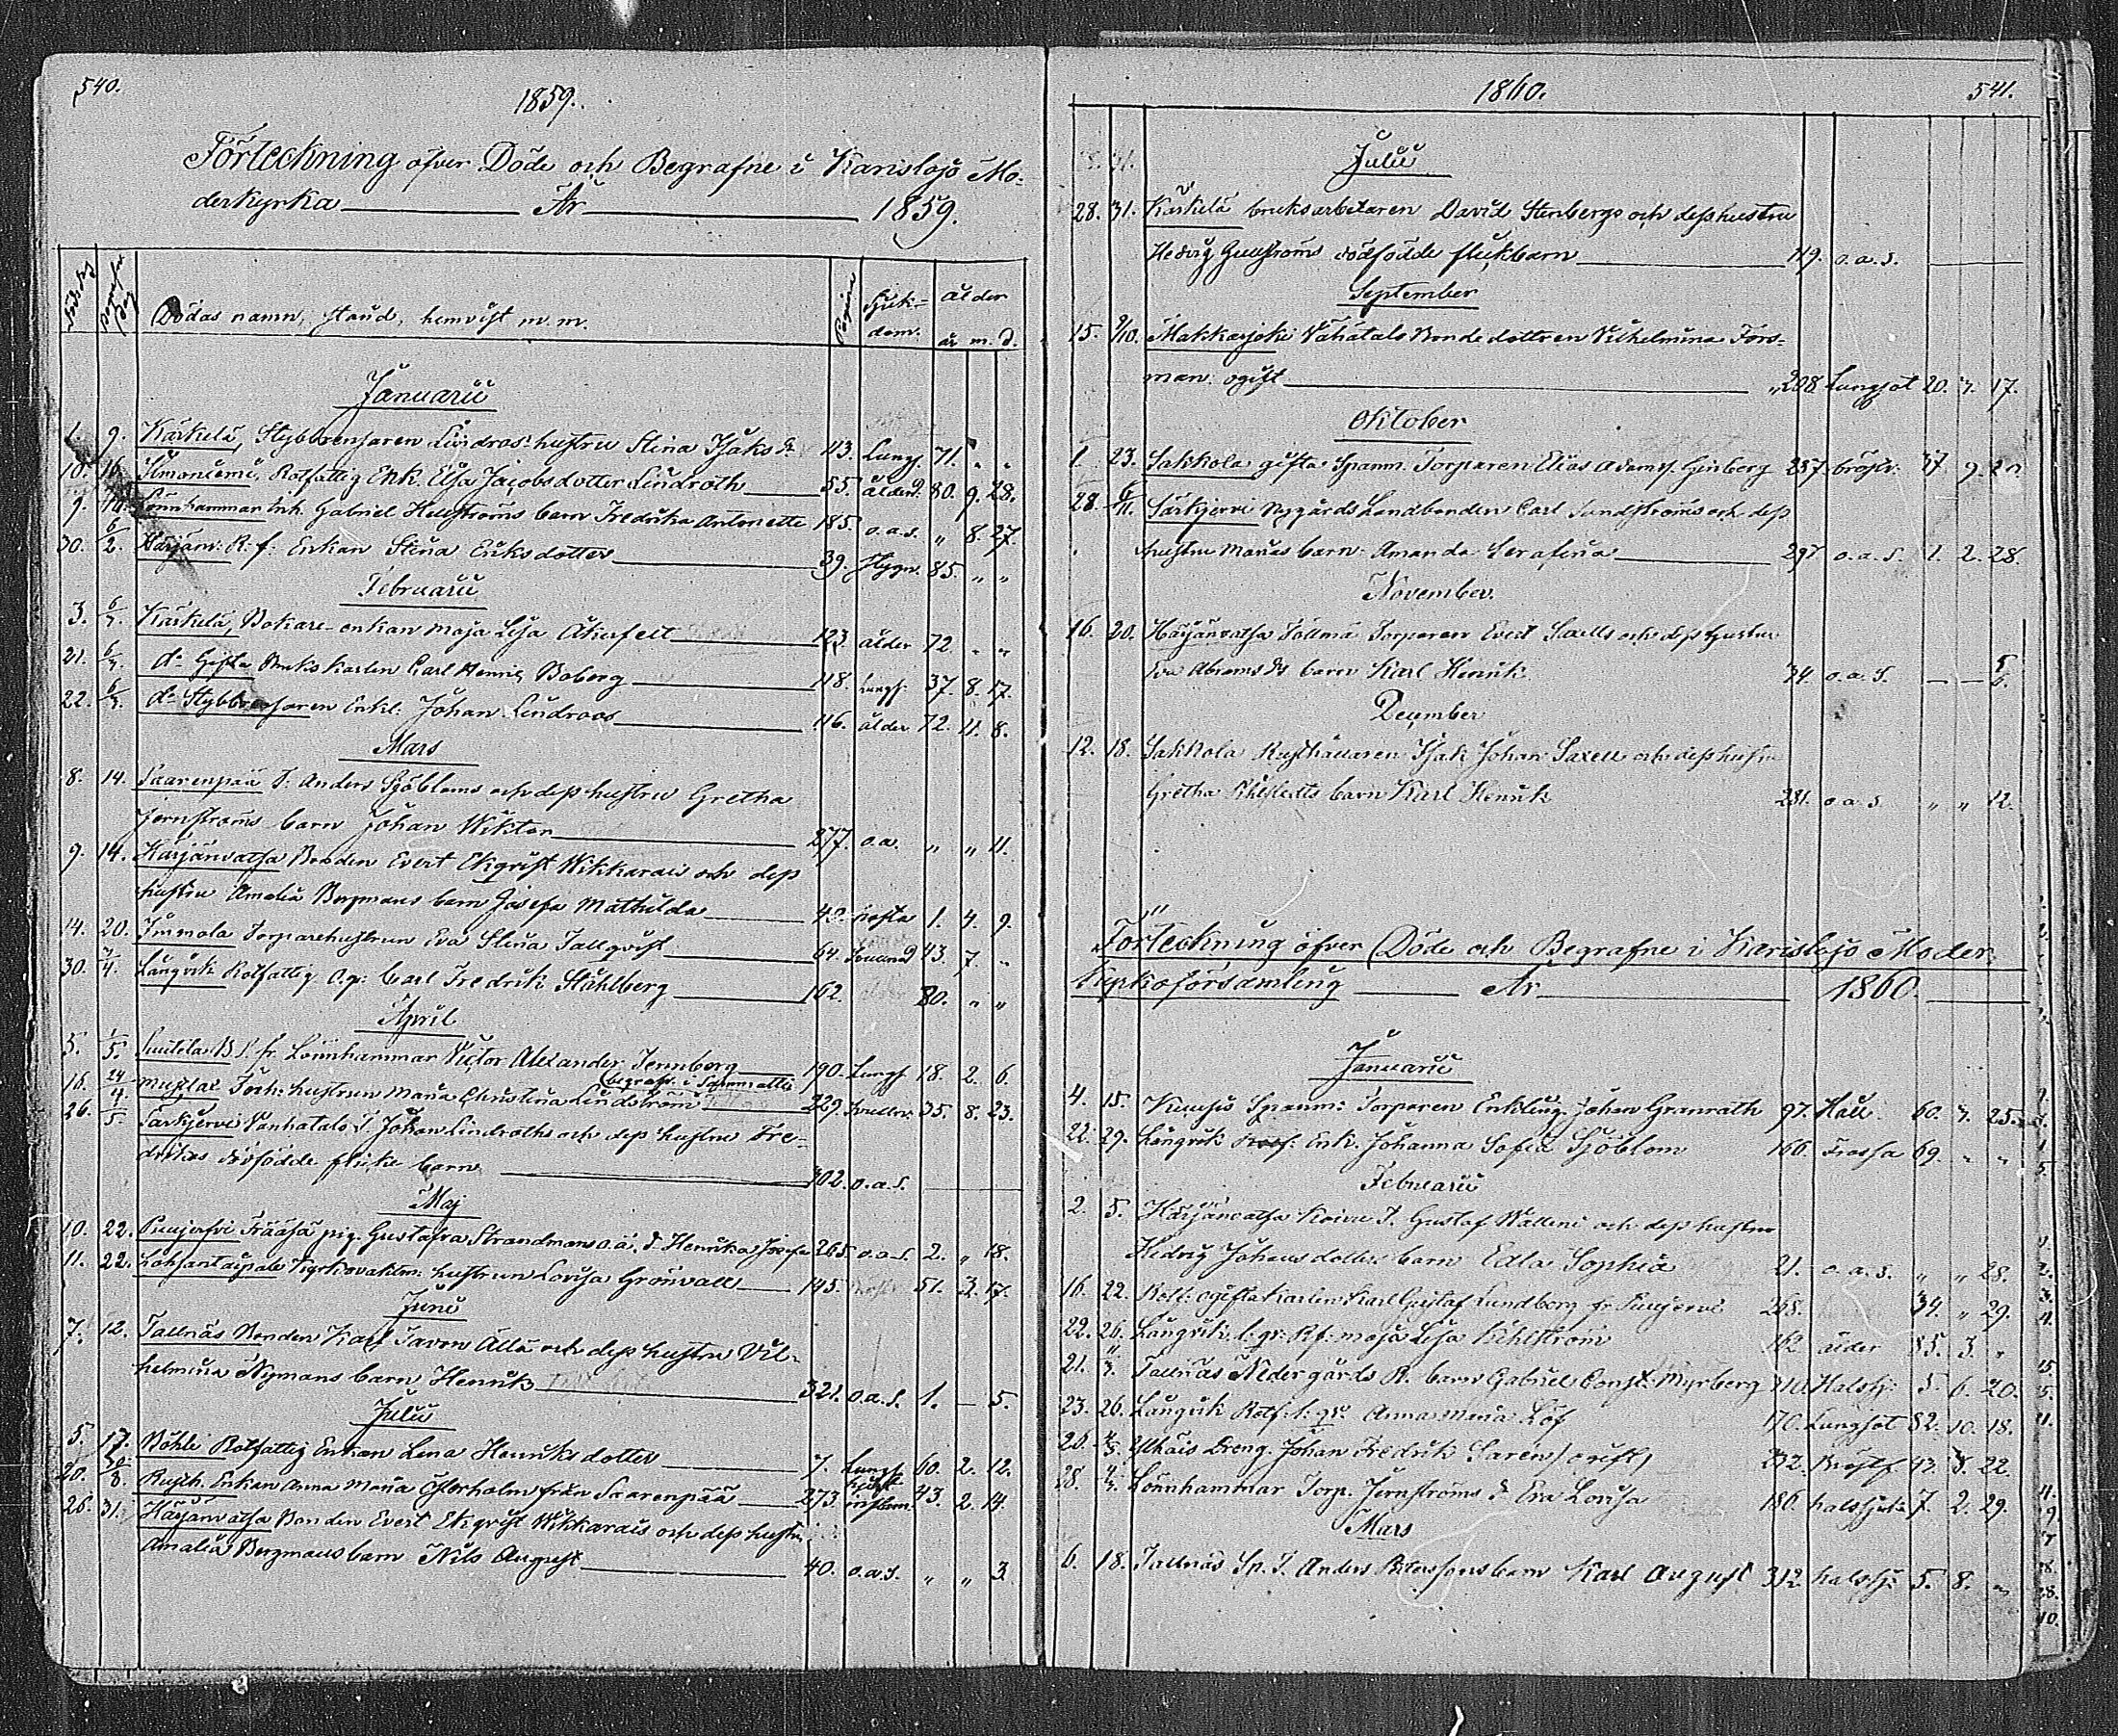 540.
1859.
Förteckning öfver Döde och Begrafne i Karislojo Mo-
derkyrka År 1859.
Dödas namn, stånd, hemvist m. m. Pagina Sjuk- ålder
dom. år m. d.
Januarii
1. 9. Kärkelä, Stybbrensaren Lindroos hustru Stina Isaks dr 113. Lungs. 71. " "
10. 16. Ilmoniemi, Rotfattig Enk. Elsa Jacobsdotter Lindroth 55. ålderd. 80. 9. 28.
9. 16. Lönnhammar Inh. Gabriel Hellströms barn Fredrika Antonette 185. o.a.s. " 8. 27.
30. 6/2. Härjänv. R. f: Enkan Stina Eriksdotter 39. Hygn. 85. " "
Februarii
3. 6/3. Kärkelä, Bokare-enkan Maja Lisa Åkerfelt 123. ålder 72. " "
21. 6/3. do Gifta Brukskarlen Carl Henric Boberg 118. Lungs. 37. 8. 17.
22. 6/3. do Stybbrensaren Enkl. Johan Lindroos 116. ålder 72. 11. 8.
Mars
8. 14. Saarenpää T. Anders Sjöbloms och dess hustru Gretha
Jernströms barn Johan Wiktor 277. o.a. " " 11.
9. 14. Härjänvatsa Bonden Evert Ekqvist Wikkarais och dess
hustru Amalia Bergmans barn Josefa Mathilda 40. hosta 1. 4. 9.
14. 20. Immola Torparehustrun Eva Stina Tallqvist 64. 43. 7. "
30. 3/4. Långvik Rotfattig Carl Fredrik Ståhlberg 162. 80. " "
April
5. 1/5. Suitela fr. Lönnhammar Victor Alexander Jernberg 190. Lungs. 18. 2. 6.
(begrafv. i Sammatti
16. 24/4. Mustlax Torp. hustrun Maria Christina Lindström 229. 35. 8. 23.
26. 1/5. Särkjervi Vanhatalo T. Johan Lindroths och dess hustru Fre-
drikas dödfödde flicke barn 302. o.a.s.
Maj
10. 22. Puujerfvi Frääsä pig. Gustafva Strandmans o.ä. d. Henrika Josefa 265. o.a.s. 2. " 18.
11. 22. Lohjantaipale Kyrkovaktm. hustrun Lovisa Grönvall 145. 51. 3. 17.
Juni
7. 12. Tallnäs Bonden Karl Savon Alla och dess hustru Vil-
helmina Nymans barn Henrik 321. o.a.s. 1. — 5.
Julii
5. 17. Böhle Rotfattig Enkan Lena Henriksdotter 7. Lungs. 60. 2. 12.
20. Rusth. Enkan Anna Maria Österholm från Saarenpää 273. 43. 2. 14.
26. 31. Härjänvatsa Bonden Evert Ekqvist Wikkarais och dess hustru
Amalia Bergmans barn Nils August 40. o.a.s. " " 3.
1860. 541.
Julii
28. 31. Kärkelä bruksarbetaren David Stenbergs och dess hustru
Hedvig Gullströms dödfödde flickbarn 119. o.a.s.
September
15. 9/10. Makkarjoki Vähätalo Bondedottren Vilhelmina Fors-
man ogift 208 Lungsot 20. 7. 17.
Oktober
1. 23. Sakkola gifta Spanm. Torparen Elias Adams. Ginberg 257. bröstv. 47. 9. 20.
28. 6/11. Särkjervi Nygårds Landbonden Carl Sundströms och dess
hustru Marias barn Amanda Serafina 297 o.a.s. 1. 2. 28.
November.
16. 20. Härjänvatsa Torparen Evert Saxells och dess hustru
Eva Abrams dr barn Karl Henrik 34. o.a.s. — —
December
12. 18. Sakkola Rusthållaren Isak Johan Saxell och dess hustru
Gretha barn Karl Henrik 281. o.a.s. " " 12.
Förteckning öfver Döde och Begrafne i Karislojo Moder-
kyrkoförsamling År 1860.
Januarii
4. 15. Kuusis Spanm. Torparen Enkling Johan Granroth 97. Håll 60. 7. 25.
22. 29. Långvik Enk. Johanna Sofia Sjöblom 166. Frossa 69. " "
Februarii
2. 5. Härjänvatsa Koivu T. Gustaf Wallens och dess hustru
Hedvig Johansdotters barn Edla Sophia 21. o.a.s. " " 28.
16. 22. Rotf. ogifta karlen Karl Gustaf Lundberg fr. Puujervi 268. 34. " 29.
22. 26. Långvik Rf. Maja Lisa Kihlström 162 ålder 85. 3. "
21. Tallnäs Nedergårds R. barn Gabriel Const. Myrberg 310. Halssj. 5. 6. 20.
23. 26. Långvik Rotf. Anna Maria Löf 170. Lungsot 82. 10. 18.
26. 4/3. Ylhäis Dreng Johan Fredrik Saren (ogift) 232. Bröstf. 43. 8. 22.
28. 4/3. Lönnhammar Torp. Jernströms d. Eva Lovisa 186. halssjuka 7. 2. 29.
Mars
6. 18. Tallnäs Sp. T. Anders Peterssons barn Karl August 312. halssj. 5. 8. "